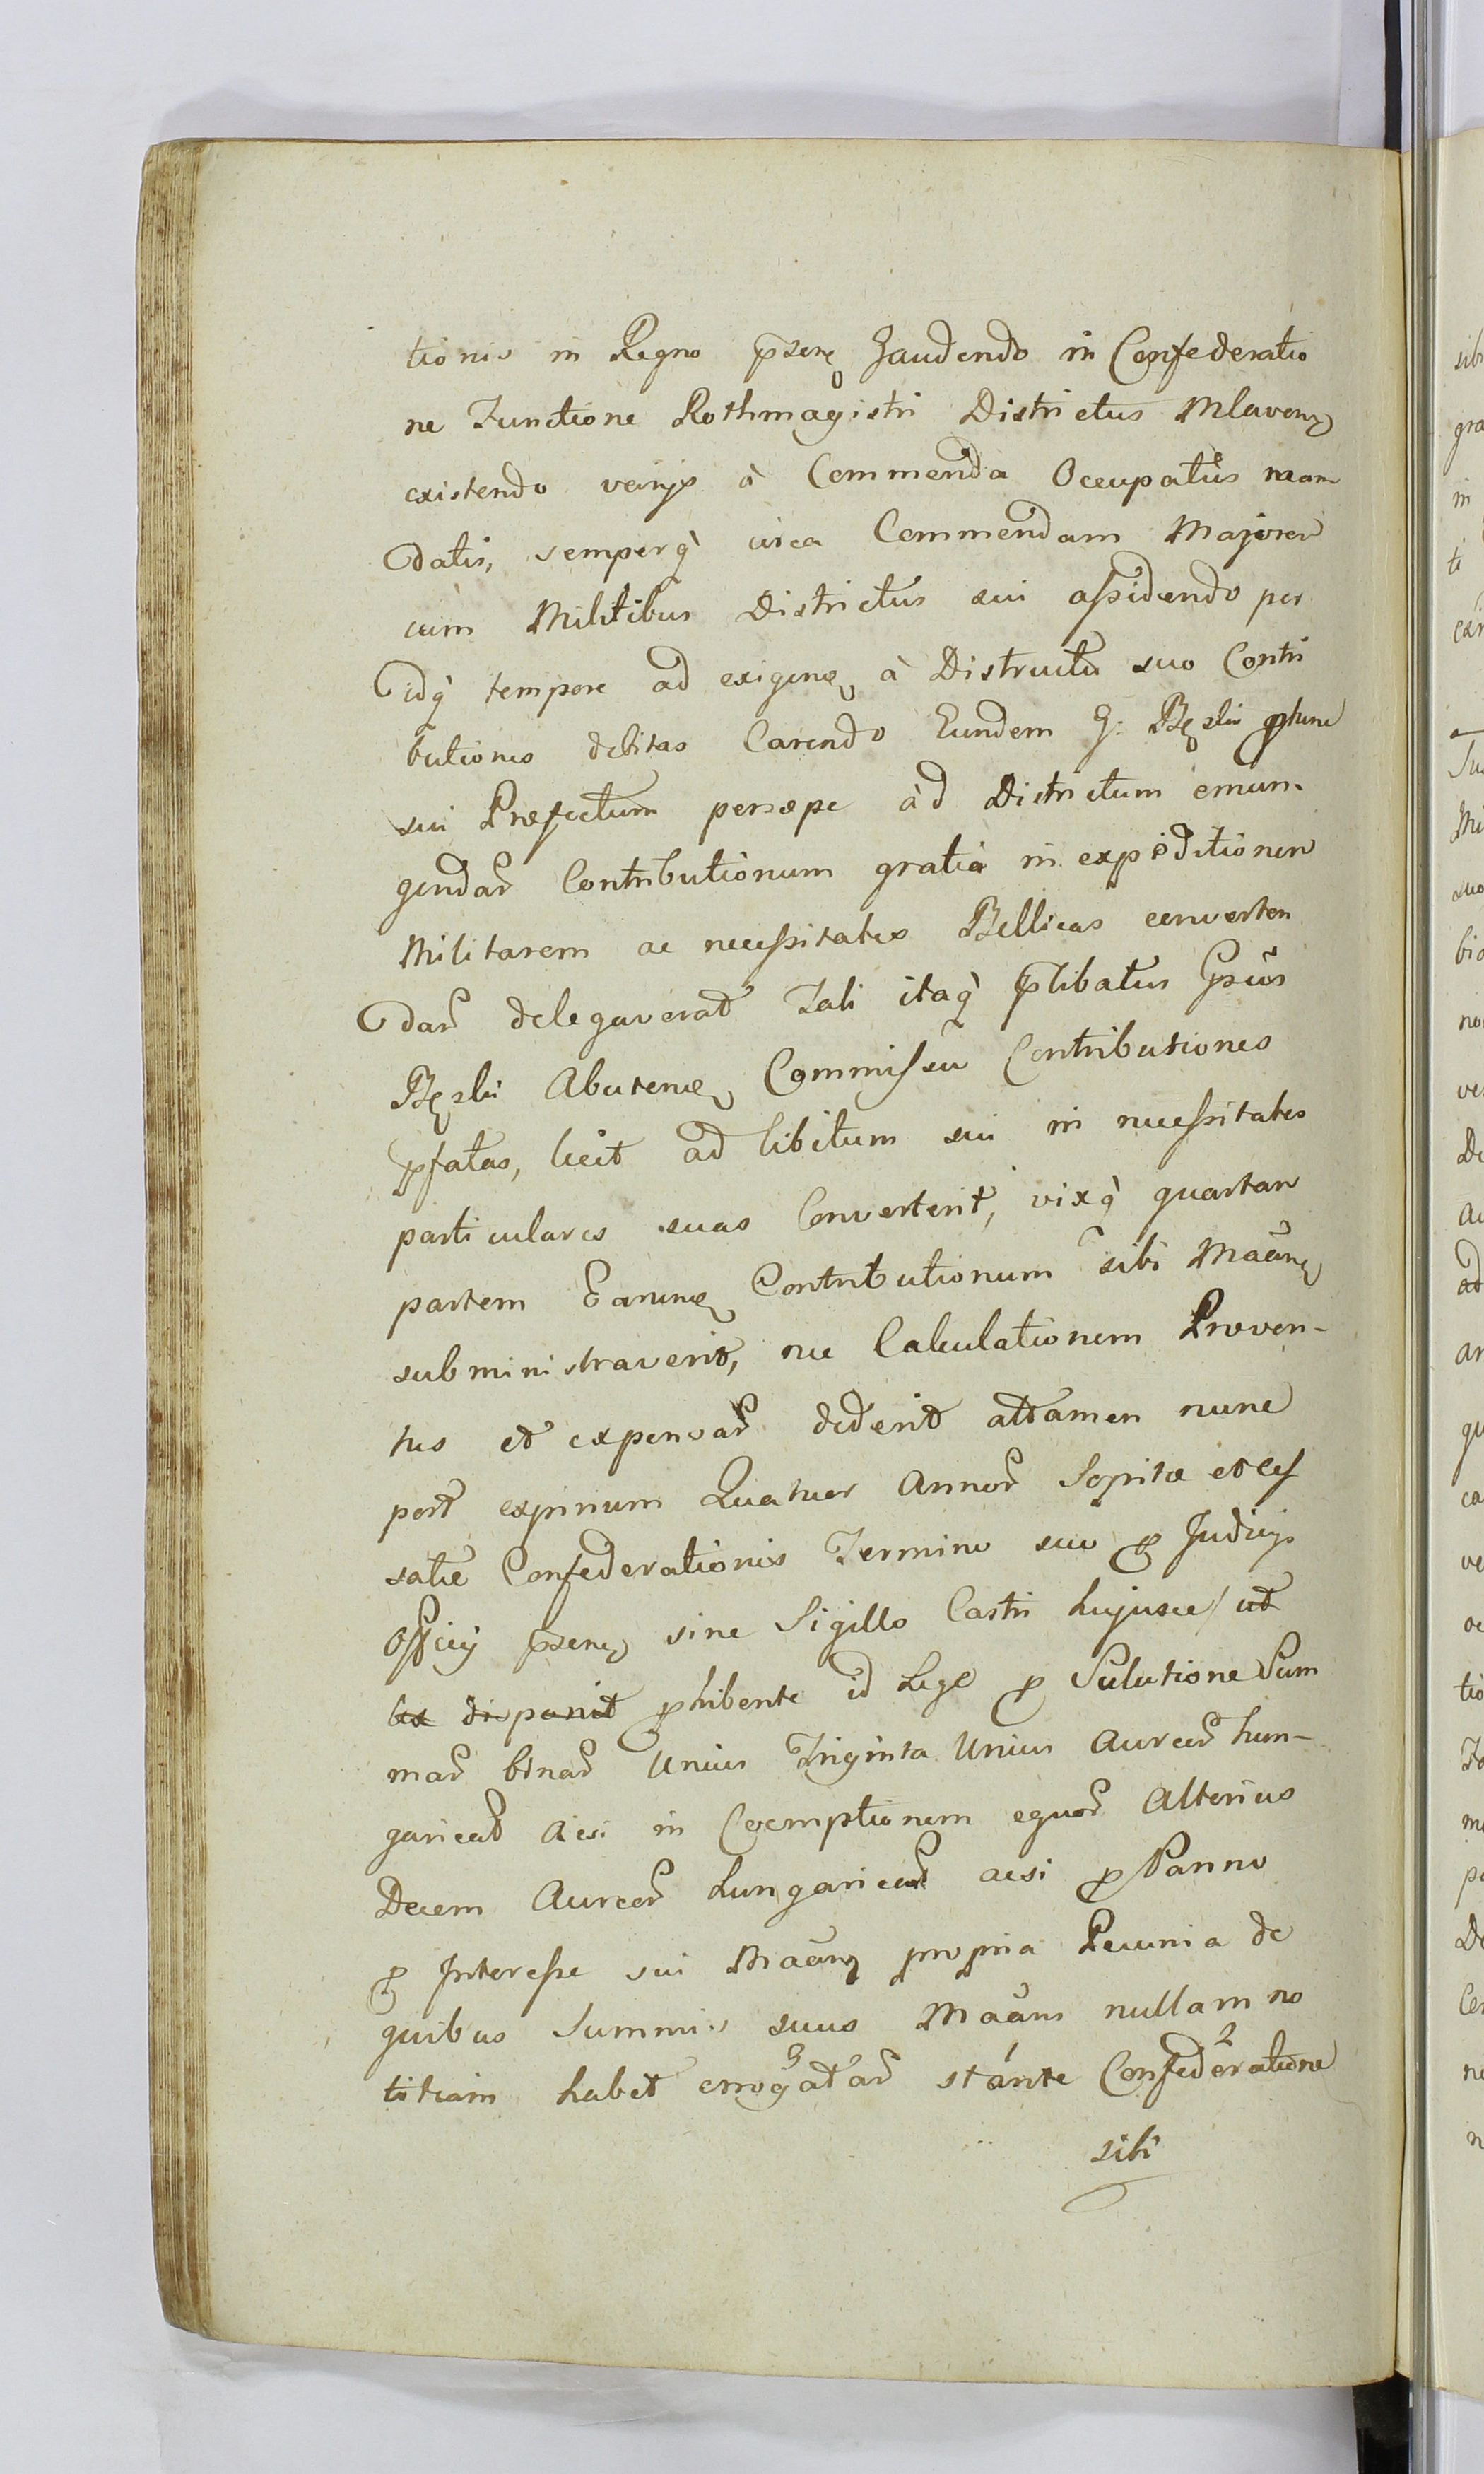 tionis in Regno p̄sen̄ Gaudendo in Confederatio
ne Functione Rothmagistri Districtus Mlaven̄
existendo varijs à Commenda Occupatus man
datis, semperq̀ circa Commendam Majorem
cum Militibus Districtus sui assidendo per
idq̀ tempore ad exigen̄ à Districtu suo Contri
butiones debitas Carendo Eundem G: Bęski p̱tunc
sui Præfectum persæpe ad Districtum emun-
gendar̄ Contributionum gratia in expeditionem
Militarem ac necessitates Bellicas converten
dar̄ delegaverat Tali itaq̀ p̄libatus Gsus
Bęski Abuten̄ Commissu Contributiones
p̄fatas, licet ad libitum sui in necessitates
particulares suas Converterit, vixq̀ quartam
partem Earun̄ Contributionum sibi Maan̄
subministraverit, nec Calculationem Proven-
tus et expensar̄ dederit attamen nunc
post expirium Quatuor Annor̄ Sopitæ et ces
satæ Confederationis Termino suo p̱ Judicys
Officij p̄sen̄ sine Sigillo Castri hujusce / ut
lex disponit p̱hibente id Lege p̱ Solutione Sum
mar̄ binar̄ Unius Triginta Unius Aureor̄ hun-
garical̄ acsi in Coemptionem equor̄ Alterius
Decem Aureor̄ hungarical̄ acsi p̱ Panno
p̱ Interesse sui Maan̄ propria Pecunia de
quibus Summis suus Maans nullam no
titiam habet errogatar̄ 3 stante 1 Confederatione 2
sibi